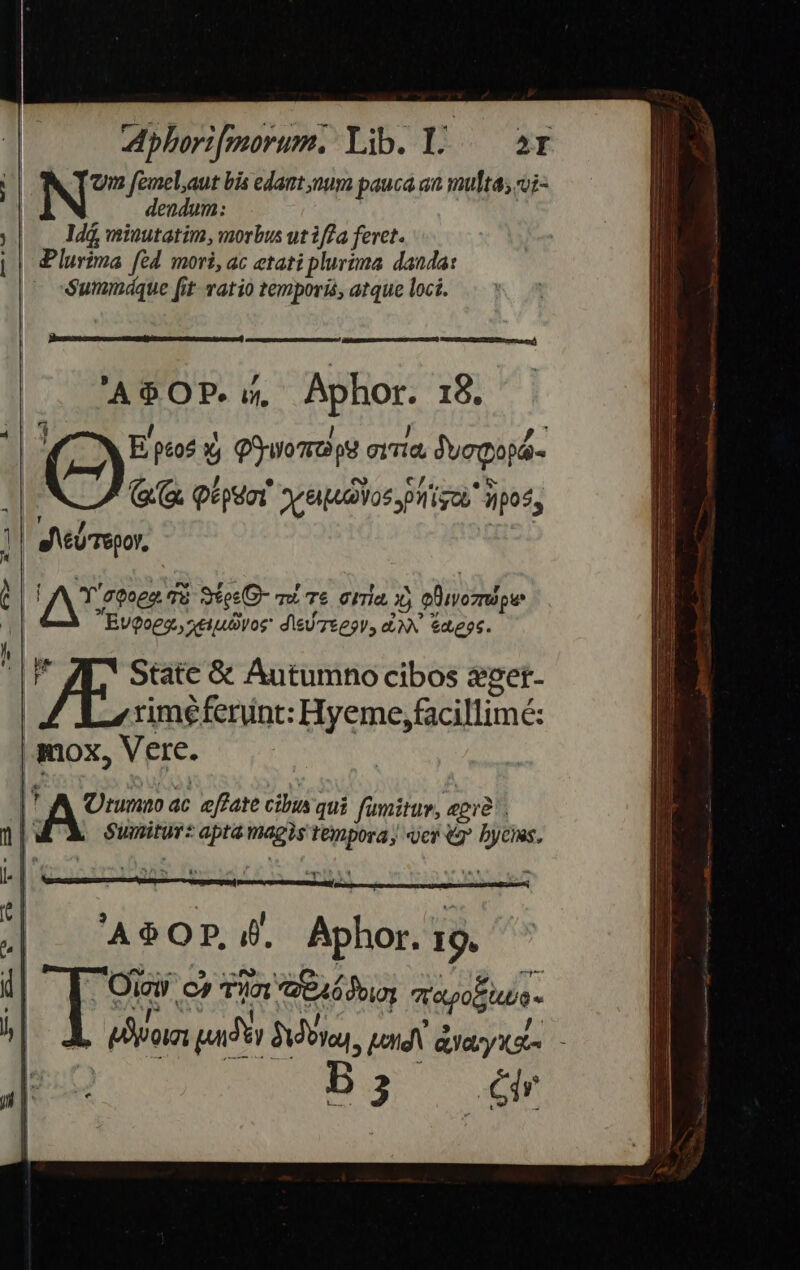 Aphoriſmorum. Lib. I. 21
NUm ſemel, aut bis edant, num pauca an multa, vi-
dendum:
Idq́, minutatim, morbus ut iſta feret.
Plurima ſed mori, ac ætati plurima danda:
Summáque ſit ratio temporis, atque loci.
ἈΦΟΡ. ιή. Aphor. 18.
ΘΕρεος ϗ φθινοπώρȣ σιτία δυσφορώ-
τατα φέρȣσι· χειμῶνος, ῥήϊςα· ἦρος,
δεύτερον.
ΔΥσφορα τȣ̃ θέρεος τά τε σιτία ϗ φθινοπώρȣ
Εὔφορα, χειμῶνος· δεύτερον, ἀλλ' ἔαρος.
ÆState & Autumno cibos æger-
rimè ferunt: Hyeme, facillimé:
mox, Vere.
AUtumno ac æſtate cibus qui ſumitur, ægrè
Sumitur: apta magìs tempora, ver & hyems.
ἈΦΟΡ. ιθ'. Aphor. 19.
ΤΟῖσιν ἐν τῇσι περιόδοισι παροξυνο-
μένοισι μηδὲν διδόναι, μηδ' ἀναγκά-
B 3 ζειν